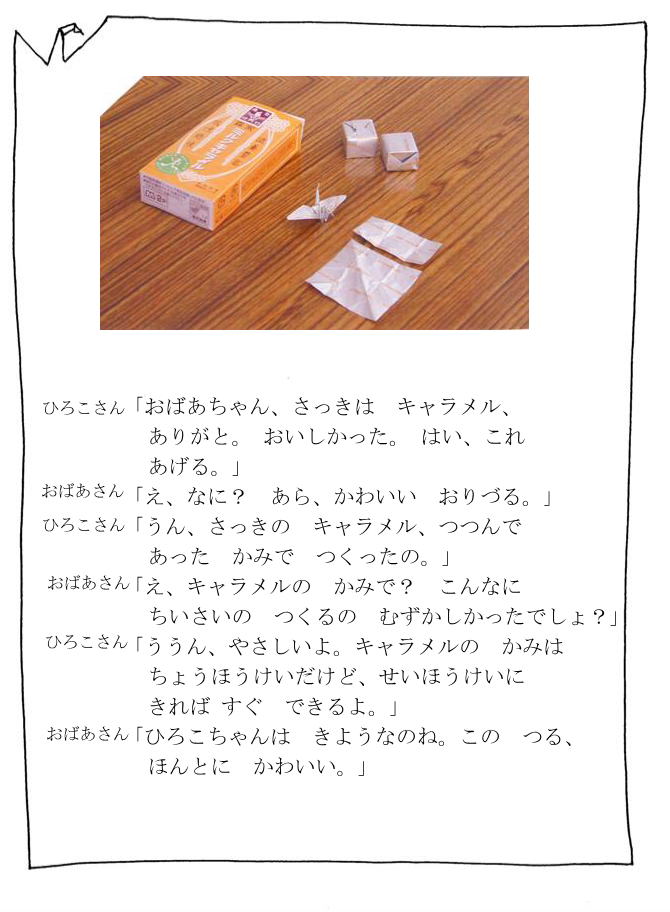 ミルクキャラメル
ひろこさん「おばあちゃん、さっきは　キャラメル、
ありがと。　おいしかった。　はい、これ
あげる。」
おばあさん「え、なに？　あら、かわいい　おりづる。」
ひろこさん「うん、さっきの　キャラメル、つつんで
あった　かみで　つくったの。」
おばあさん「え、キャラメルの　かみで？　こんなに
ちいさいの　つくるの　むずかしかったでしょ？」
ひろこさん「ううん、やさしいよ。キャラメルの　かみは
ちょうほうけいだけど、せいほうけいに
きれば すぐ　できるよ。」
おばあさん「ひろこちゃんは　きようなのね。この　つる、
ほんとに　かわいい。」